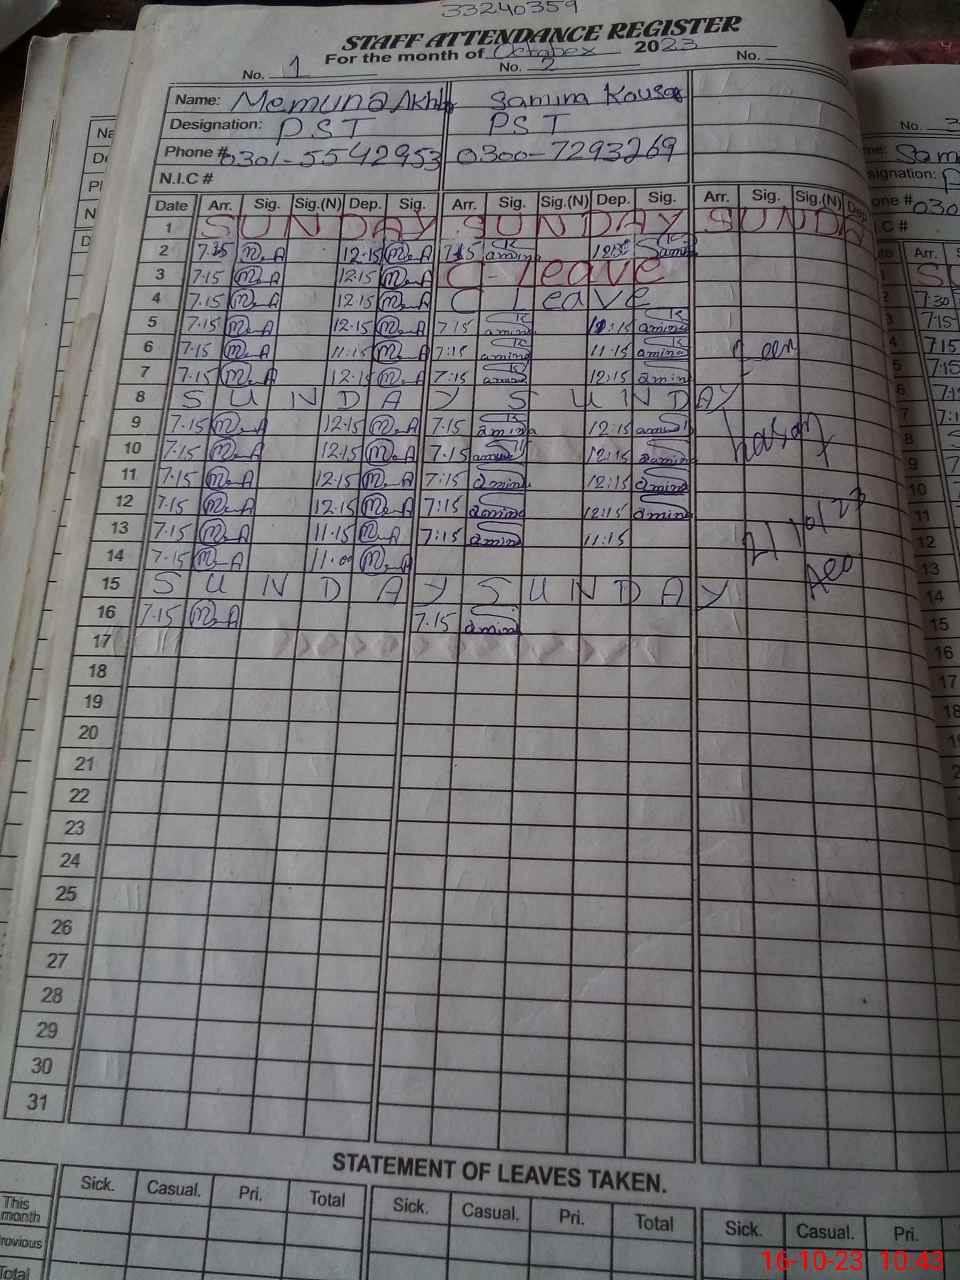 33240359
STAFF ATTENDANCE REGISTER
For the month of October 2023
No. 1 No. 2 No.
Name: Memuna Akhtar Samina Kousar
Designation: P.S.T PST
Phone # 0301-5542953 0300-7293269
N.I.C #
Date Arr. Sig. Sig.(N) Dep. Sig. Arr. Sig. Sig.(N) Dep. Sig. Arr. Sig. Sig.(N) Dep
1 SUNDAY SUNDAY SUNDA
2 M.A 12.15 M.A
3 7.15 M.A 12.15 M.A C-Leave
4 7.15 M.A 12.15 M.A C Leave
5 7.15 M.A 12.15 M.A 7:15 amina 12:15 amina
6 7.15 M.A 11.15 M.A 7:15 amina 11:15 amina
7 7.15 M.A 12.15 M.A 7:15 amina 12:15 amin
8 SUNDAY SUNDAY
9 7.15 M.A 12.15 M.A 7.15 amina 12:15
10 7.15 M.A 12.15 M.A 7.15 12:15 amina
11 7.15 M.A 12.15 M.A 7:15 amina 12:15 amina
12 7.15 M.A 12.15 M.A 7:15 amina 12:15 amina
13 7.15 M.A 11.15 M.A 7:15 amina 11:15
14 7.15 M.A 11.00 M.A
15 SUNDAY SUNDAY
16 7.15 M.A 7.15 amina
17
18
19
20
21
22
23
24
25
26
27
28
29
30
31
Seen
hasan
Aeo
STATEMENT OF LEAVES TAKEN.
Sick. Casual. Pri. Total Sick. Casual. Pri. Total Sick. Casual. Pri.
This month
Previous
Total
16-10-23 10.43